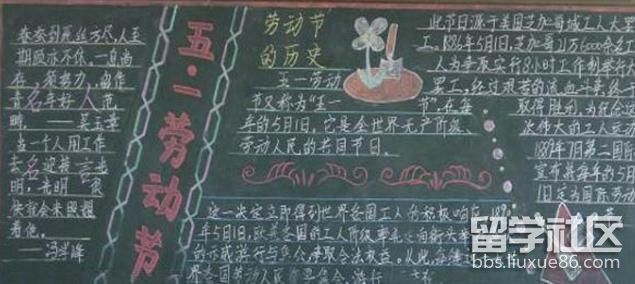 五·一劳动节
春蚕到死丝方尽,人至
期颐亦不休。一息尚
存 须努力,留作
青 名年好 人 范
畴。 ——吴玉章
当一个人用工作
去 名 迎接 言
明,光明 很
快就会来照耀
着他。
——冯学峰
劳动节
的历史
五一劳动
节又称为"五一 节",在每
年的5月1日。它是全世界无产阶级、
劳动人民的共同节日。
此节日源于美国芝加哥城工人大罢
工。1886年5月1日,芝加哥21万6000余名工
人为争取实行8小时工作制举行大
罢工,经过艰苦的流血斗争,终于
取得胜利。为纪念这
次伟大的工人运动
1889年7月第二国际
宣布将每年的5月
1日定为国际劳动
节
这一决定立即得到世界各国工人的积极响应
年5月1日,欧美各国的工人阶级率先走向街头
的示威游行与集会,争取合法权益。从此,每逢
界各国劳动人民都要集会、游行
留学社区
bbs.liuxue86.com